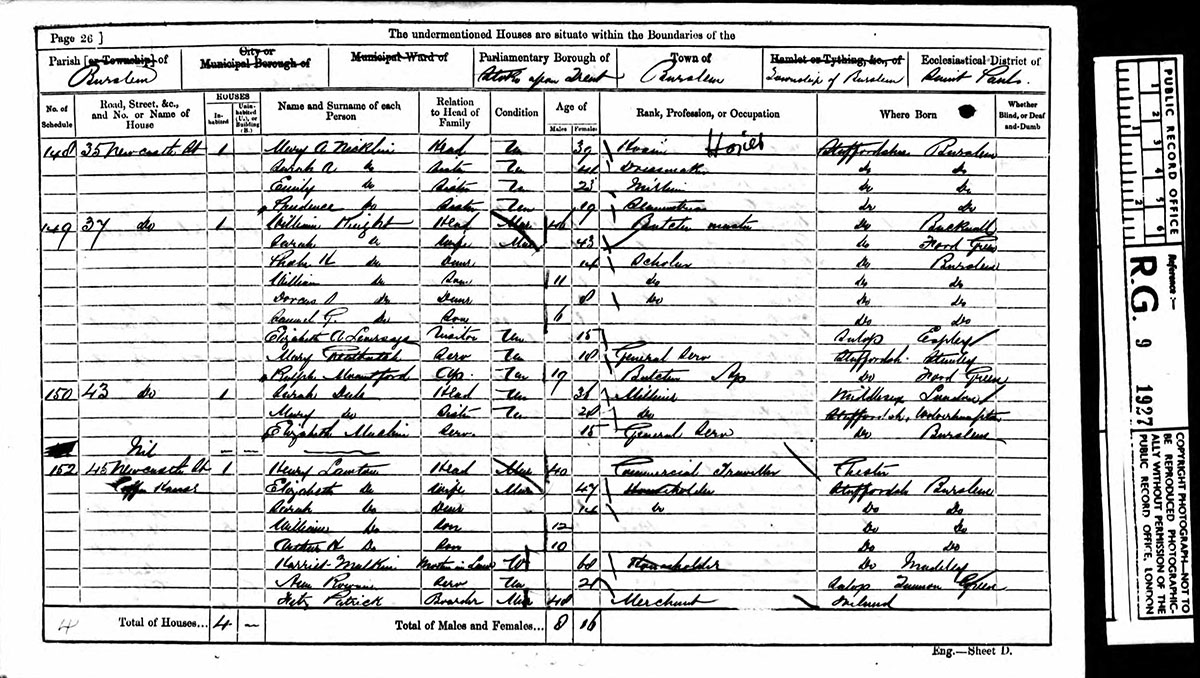 Page 26 ]
The undermentioned Houses are situate within the Boundaries of the
Parish [or Township] of
Burslem
City or Municipal Borough of
Municipal Ward of
Parliamentary Borough of
Stoke upon Trent
Town of
Burslem
Hamlet or Tything, &c., of
Township of Burslem
Ecclesiastical District of
Saint Pauls
No. of Schedule
Road, Street, &c., and No. or Name of House
HOUSES
Inhabited
Uninhabited (U.), or Building (B.)
Name and Surname of each Person
Relation to Head of Family
Condition
Age of
Males
Females
Rank, Profession, or Occupation
Where Born
Whether Blind, or Deaf-and-Dumb
148 35 Newcastle St 1 Mary A Head Un 39 Hosier Staffordshire Burslem
Sarah A Do Sister Un Dressmak Do Do
Emily Do Sister Un 23 Do Do
Prudence Do Sister Un 19 Do Do
149 37 do 1 William Knight Head Mar 46 Butcher master Do Bucknall
Sarah Do Wife Mar 43 Do Ford Green
H Do Daur 14 Scholar Do Burslem
William Do Son 11 do Do Do
Dorcas Do Daur 8 Do Do Do
Samuel G. Do Son 6 Do Do
Elizabeth A Visitor Un 15 Salop
Mary Serv Un 18 General Serv Staffordsh
Ralph Mountford Ap. Un 19 Butcher Ap Do Ford Green
150 43 do 1 Sarah Head Un 36 Milliner Middlesex London
Mary Do Sister Un 28 Do Staffordsh, Wolverhampton
Elizabeth Serv. 15 General Serv Do Burslem
Nil
152 45 Newcastle St 1 Henry Lawton Head Mar 40 Commercial Traveller Chester
Elizabeth Do Wife Mar 47 Householder Staffordsh Burslem
Sarah Do Daur 14 Do Do Do
William Do Son 12 Do Do
Arthur H Do Son 10 Do Do
Harriet Malkin Moth in Law W 68 Householder Do Madeley
Ann Serv Un 21 Salop Green
Patrick Boarder Mar 48 Merchant Ireland
4 Total of Houses... 4 — Total of Males and Females... 8 16
Eng.—Sheet D.
PUBLIC RECORD OFFICE
1 2 3 4 5 6
1 2
Reference :—
R.G. 9 1927
COPYRIGHT PHOTOGRAPH—NOT TO
BE REPRODUCED PHOTOGRAPHIC-
ALLY WITHOUT PERMISSION OF THE
PUBLIC RECORD OFFICE, LONDON